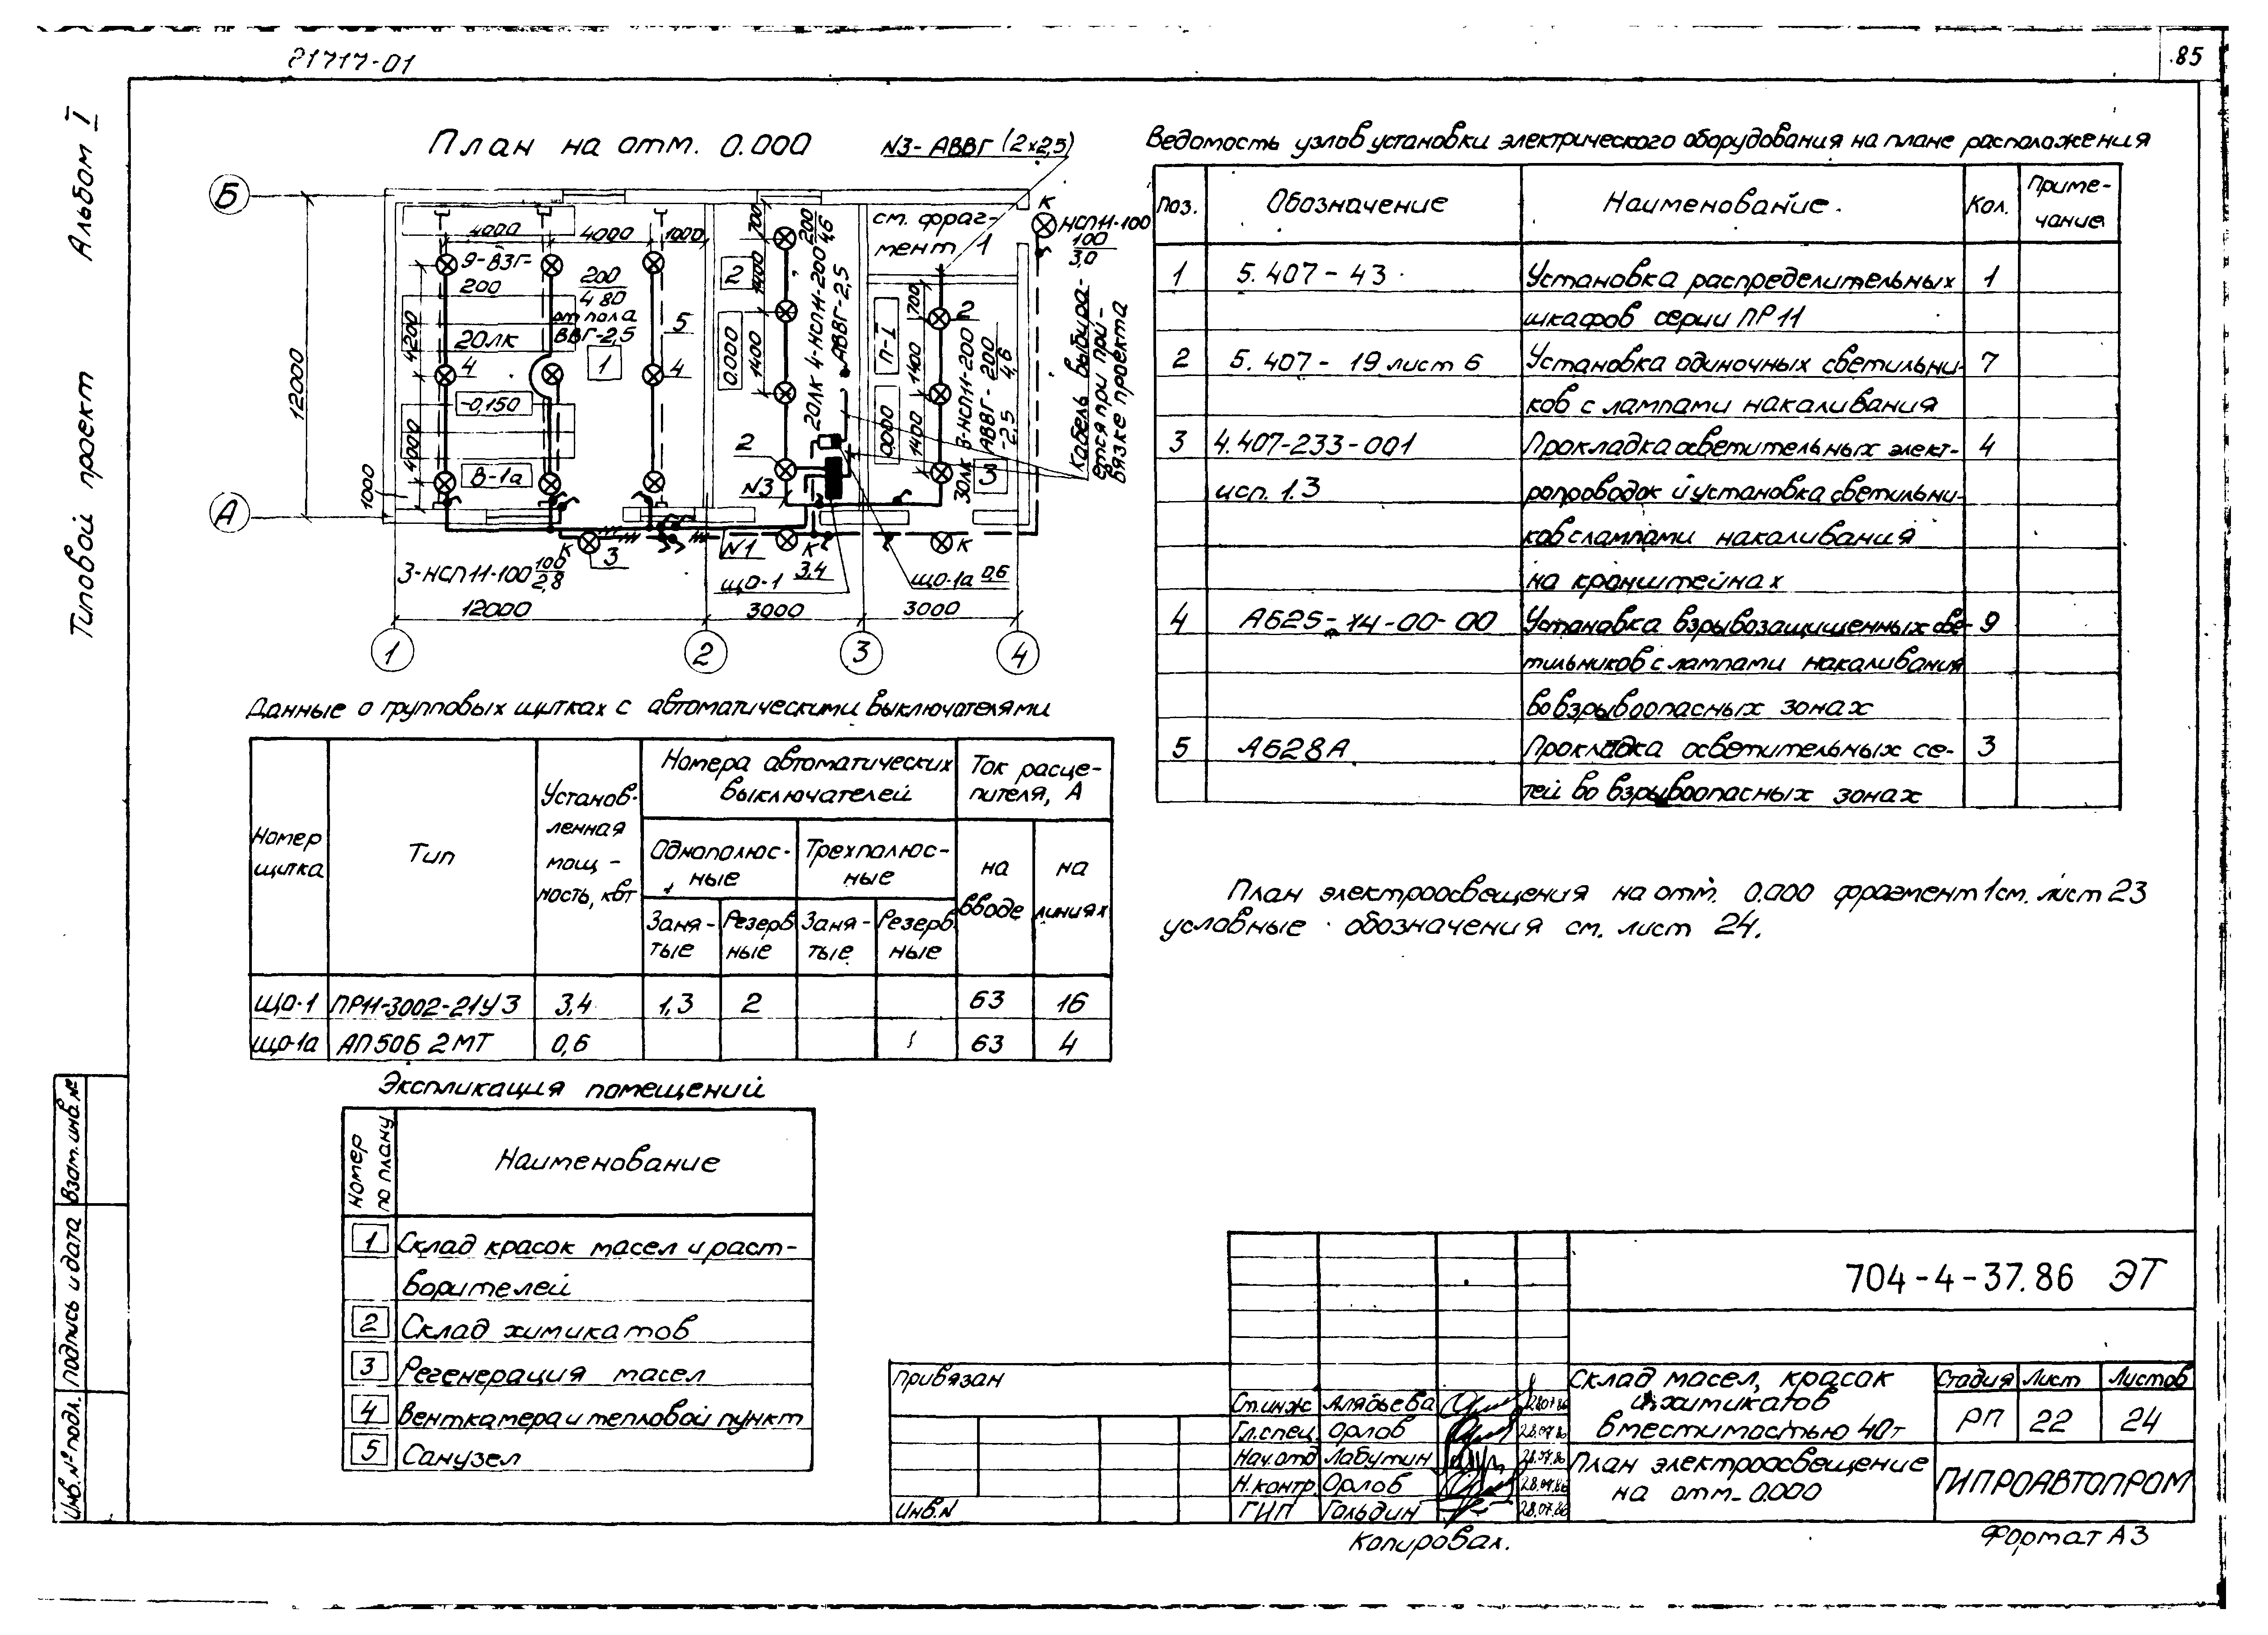 21717-01
85
Альбом I
Типовой проект
План на отм. 0.000
N3-АВВГ (2×2,5)
Б
А
12000
4000
4000
1000
9-ВЗГ-
200
200
4 80
от пола
ВВГ-2,5
20лк
4
1
4
5
-0,150
В-1а
4200
4000
1000
2
0.000
700
1400
1400
20лк 4-НСП11-200 200
4,6
АВВГ-2,5
см. фраг-
мент 1
П-I
0.000
700
1400
1400
2
30лк 3-НСП11-200 200
4,6
АВВГ-
-2,5
3
К
НСП11-100
100
3,0
Кабель выбира-
ется при при-
вязке проекта
2
N3
К
3
N1
К
К
3-НСП11-100 100
2,8
ЩО-1 3,4
ЩО-1а 0,6
12000
3000
3000
1
2
3
4
Ведомость узлов установки электрического оборудования на плане расположения
Поз.
Обозначение
Наименование.
Кол.
Приме-
чание
1 5.407-43 Установка распределительных 1
шкафов серии ПР11
2 5.407-19 лист 6 Установка одиночных светильни- 7
ков с лампами накаливания
3 4.407-233-001 Прокладка осветительных элект- 4
исп. 1.3 ропроводок и установка светильни-
ков с лампами накаливания
на кронштейнах
4 А625-14-00-00 Установка взрывозащищенных све- 9
тильников с лампами накаливания
во взрывоопасных зонах
5 А628А Прокладка осветительных се- 3
тей во взрывоопасных зонах
План электроосвещения на отм. 0.000 фрагмент 1 см. лист 23
условные обозначения см. лист 24.
Данные о групповых щитках с автоматическими выключателями
Номер
щитка
Тип
Установ-
ленная
мощ-
ность, кВт
Номера автоматических
выключателей
Однополюс-
ные
Трехполюс-
ные
Заня-
тые
Резерв
ные
Заня-
тые
Резерв.
ные
Ток расце-
пителя, А
на
вводе
на
линиях
ЩО-1 ПР11-3002-21У3 3,4 1,3 2 63 16
ЩО-1а АП50Б 2МТ 0,6 63 4
Экспликация помещений
Номер
по плану
Наименование
1 Склад красок масел и раст-
ворителей
2 Склад химикатов
3 Регенерация масел
4 Венткамера и тепловой пункт
5 Санузел
Взам. инв. №
Подпись и дата
Инв. № подл.
Привязан
Инв. N
704-4-37.86 ЭТ
Ст. инж Алябьева 28.07.86
Гл. спец. Орлов 28.07.86
Нач. отд Лабутин 28.07.86
Н. контр. Орлов 28.07.86
ГИП Гольдин 28.07.86
Склад масел, красок
и химикатов
вместимостью 40т
План электроосвещение
на отм. 0.000
Стадия Лист Листов
РП 22 24
ГИПРОАВТОПРОМ
Копировал.
Формат А3